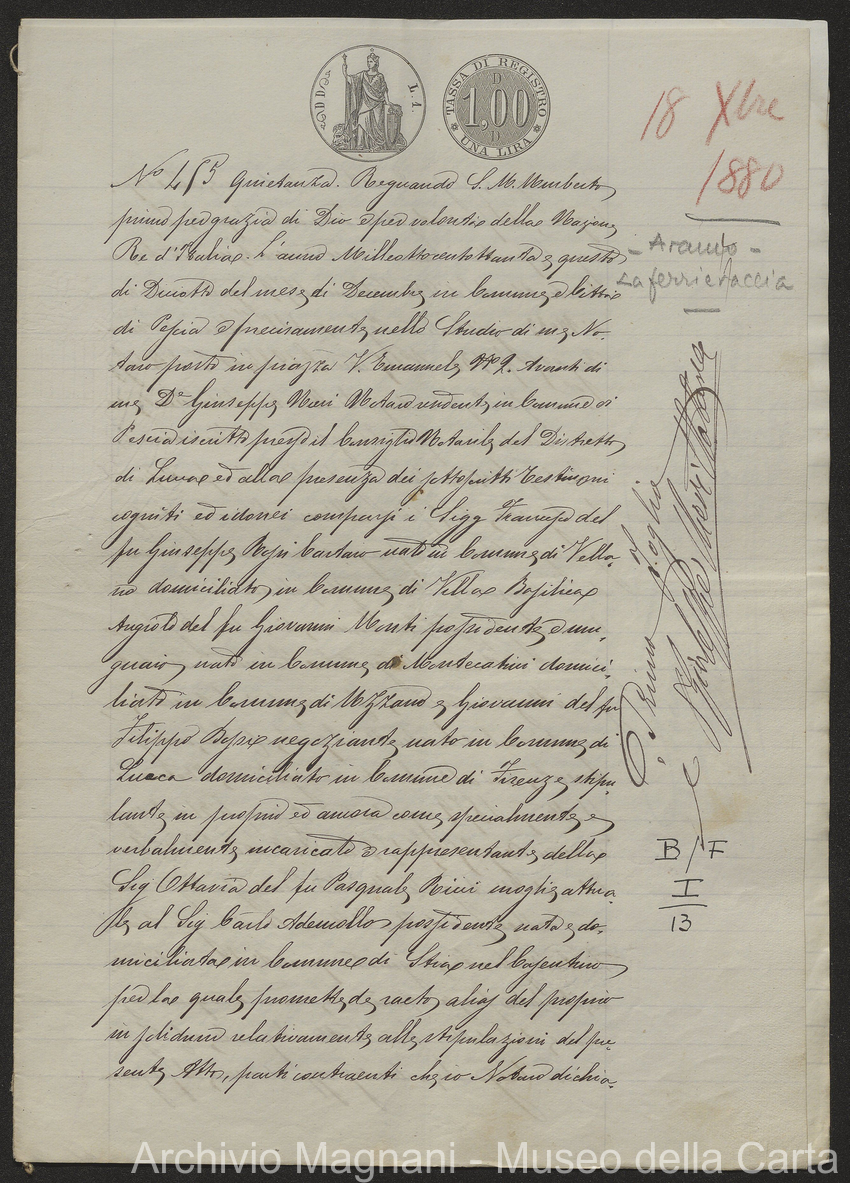 L. 1.
TASSA DI REGISTRO
D
1,00
D
UNA LIRA
18 Xbre
1880
- Aramo -
Laferrieraccia
No 415 Quietanza. Regnando S. M. Umberto
primo per grazia di Dio e per volontà della Nazione
Re d'Italia. L'anno Milleottocentottanta e questo
dì Diciotto del mese di Decembre in Comune e Città
di Pescia e precisamente nello Studio di me No-
taro posto in piazza V. Emanuele No 2. Avanti di
me Dr Giuseppe Neri Notaro residente in Comune di
Pescia iscritto presso il Consiglio Notarile del Distretto
di Lucca ed alla presenza dei sottoscritti Testimoni
cogniti ed idonei comparsi i Sigg Francesco del
fu Giuseppe Cartaro nato in Comune di Vella-
no domiciliato in Comune di Villa Basilica
Angiolo del fu Giovanni Monti possidente e mu-
gnaio nato in Comune di Montecatini domici-
liato in Comune di Uzzano e Giovanni del fu
Filippo negoziante nato in Comune di
Lucca domiciliato in Comune di Firenze stipu-
lante in proprio ed ancora come specialmente e
verbalmente incaricato e rappresentante della
Sig Ottavia del fu Pasquale Ricci moglie attua-
le al Sig Carlo Ademollo possidente nata e do-
miciliata in Comune di Stia nel Casentino
per la quale promette de rato alias del proprio
in solidum relativamente alle stipulazioni del pre-
sente Atto, parti contraenti che io Notaro dichia-
Primo foglio
Giuseppe Neri Notaro
B/F
I
13
Archivio Magnani - Museo della Carta